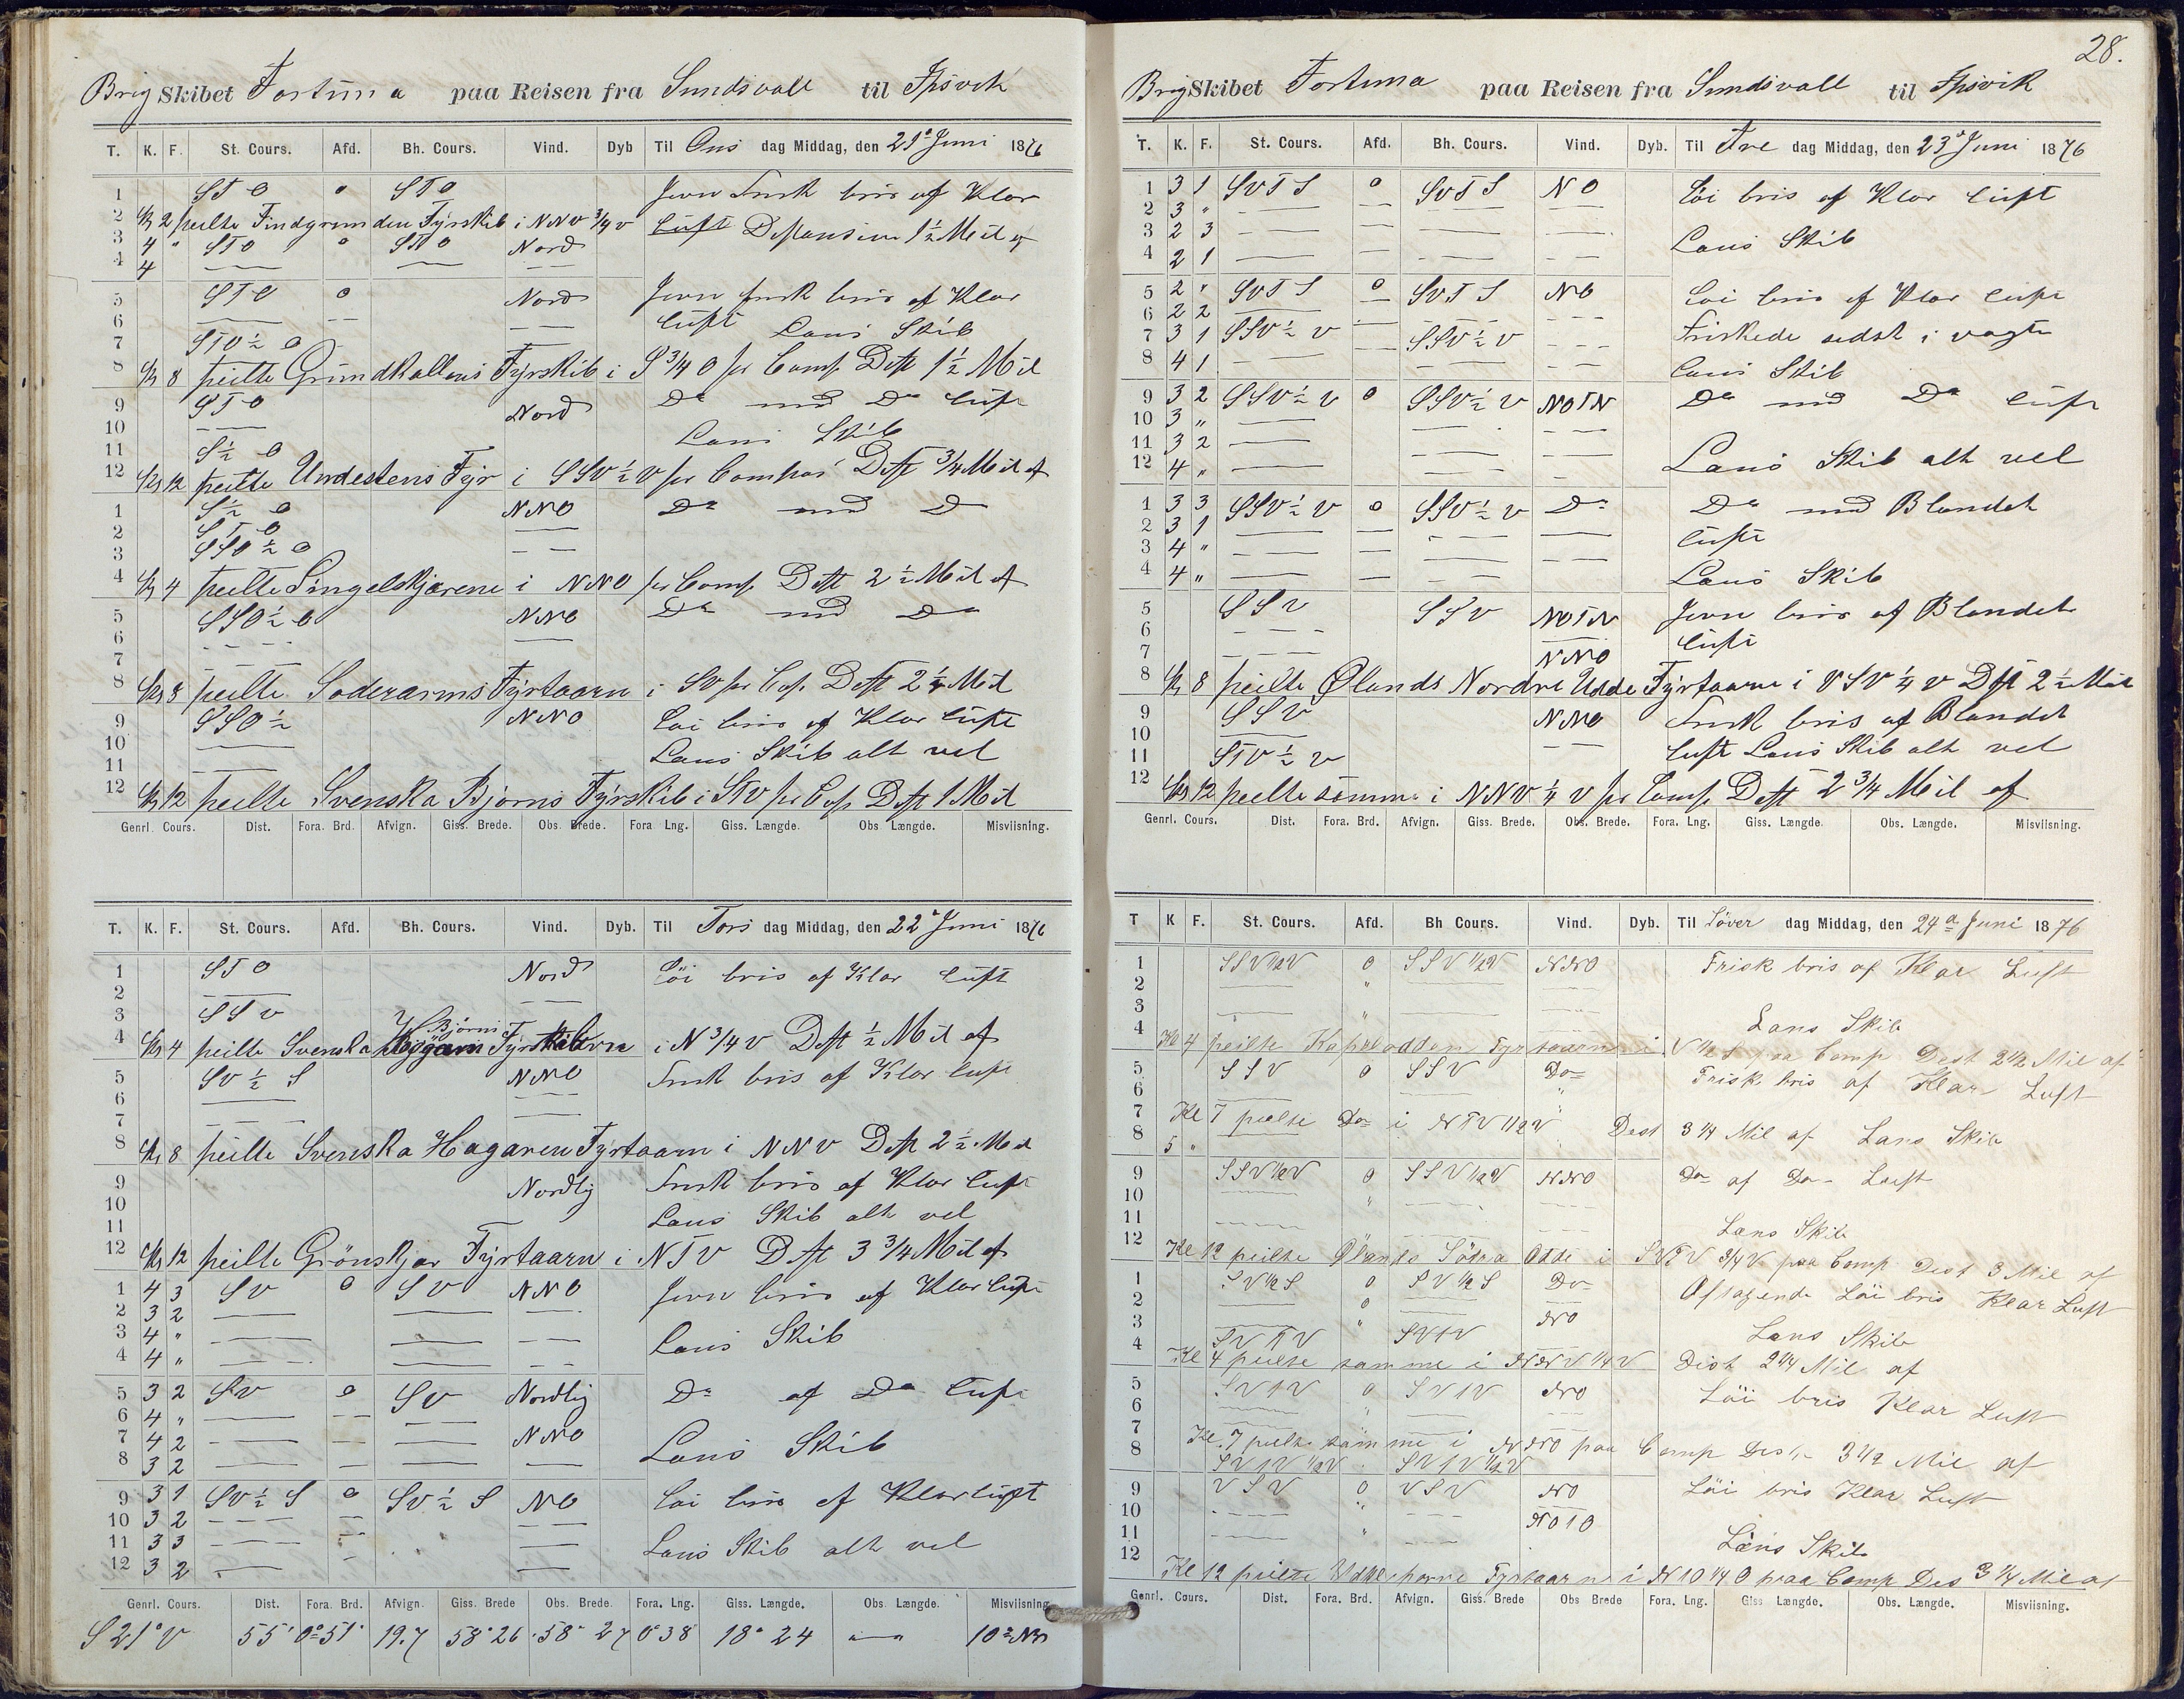 Brig Skibet Fortuna paa Reisen fra Sundsvall til Ipsvik
T. K. F. St. Cours. Afd. Bh. Cours. Vind. Dyb Til Ons dag Middag, den 21de Juni 1876
1 STO o STO Jevn Frisk bris af Klar
2 Kl 2 peilte Findgrunden Fyrskib i NNV 3/4 V Luft Distansen 1½ Mil af
3 4 " STO o STO Nord
4 4
5 STO o Nord Jevn frisk bris af Klar
6 Luft Lens Skib
7 STO ½ O
8 Kl 8 peilte Grundkallens Fyrskib i S 3/4 O pr Comp Dist 1½ Mil
9 STO Nord Do med Do Luft
10 Lens Skib
11 S ½ O
12 Kl 12 peilte Undestens Fyr i SSV ½ V pr Compas Dist 3/4 Mil af
1 S ½ O NNO Do med Do
2 STO
3 SSO ½ O
4 Kl 4 peilte Singelskjærene i NNO pr Comp Dist 2½ Mil af
5 SSO ½ O NNO Do med Do
6
7
8 Kl 8 peilte Soderarms Fyrtaarn i SV pr Cop Dist 2¼ Mil
9 SSO ½ NNO Löi bris af Klar Luft
10 Lens Skib alt vel
11
12 Kl 12 peilte Svenska Bjorns Fyrskib i STV pr Cop Dist 1 Mil
Genrl. Cours. Dist. Fora. Brd. Afvign. Giss. Brede. Obs. Brede. Fora Lng. Giss. Længde. Obs Længde. Misviisning.
T. K. F. St. Cours. Afd. Bh. Cours. Vind. Dyb. Til Tors dag Middag, den 22de Juni 1876
1 STO Nord Löi bris af Klar Luft
2
3 SSV
Bjorns
4 Kl 4 peilte Svenska Fyrskib i N 3/4 V Dist ½ Mil af
5 SV ½ S NNO Frisk bris af Klar Luft
6
7
8 Kl 8 peilte Svenska Hagaren Fyrtaarn i NNV Dist 2½ Mil
9 Nordlig Frisk bris af Klar Luft
10 Lens Skib alt vel
11
12 Kl 12 peilte Grönskjær Fyrtaarn i NTV Dist 3 3/4 Mil af
1 4 3 SV o SV NNO Jevn bris af Klar Luft
2 3 2
3 4 " Lens Skib
4 4 "
5 3 2 SV o SV Nordlig Do af Do Luft
6 4 "
7 4 2 NNO Lens Skib
8 3 2
9 3 1 SV ½ S o SV ½ S NO Löi bris af Klar Luft
10 3 2
11 3 3 Lens Skib alt vel
12 3 2
Genrl. Cours. Dist. Fora. Brd. Afvign. Giss. Brede Obs. Brede. Fora. Lng. Giss. Længde. Obs. Længde. Misviisning
S 21° V 55' 0° 51' 19.7 58° 26 58° 27 0° 38 18° 24
28.
Brig Skibet Fortuna paa Reisen fra Sundsvall til Ipsvik
T. K. F. St. Cours. Afd. Bh. Cours. Vind. Dyb. Til Fre dag Middag, den 23de Juni 1876
1 3 1 SVTS o SVTS NO Löi bris af Klar Luft
2 3 "
3 2 3 Lens Skib
4 2 1
5 2 " SVTS o SVTS NO Löi bris af Klar Luft
6 2 2 Friskede sidst i vagten
7 3 1 SSV ½ V SSV ½ V
8 4 1 Lens Skib
9 3 2 SSV ½ V o SSV ½ V NOTN Do med Do Luft
10 3 "
11 3 2 Lens Skib alt vel
12 4 "
1 3 3 SSV ½ V o SSV ½ V Do Do med Blandet
2 3 1 Luft
3 4 "
4 4 " Lens Skib
5 SSV SSV NOTN Jevn bris af Blandet
6 Luft
7 NNO
8 Kl 8 peilte Ølands Nordre Udde Fyrtaarn i VSV ¼ V Dist 2½ Mil
9 SSV NNO Frisk bris af Blandet
10 Luft Lens Skib alt vel
11 STV ½ V
12 Kl 12 peilte samme i NNV ¼ V pr Comp Dist 2 3/4 Mil af
Genrl. Cours. Dist. Fora. Brd. Afvign. Giss. Brede. Obs. Brede. Fora. Lng. Giss. Længde. Obs. Længde. Misviisning.
T K F. St. Cours. Afd. Bh Cours. Vind. Dyb. Til Löver dag Middag, den 24de Juni 1876
1 SSV ½ V o SSV ½ V NNO Frisk bris af Klar Luft
2
3 Lens Skib
4 Kl 4 peilte Kapeludden Fyrtaarn i V ½ S paa Comp Dist 2½ Mil af
5 SSV o SSV Do Frisk bris af Klar Luft
6
7 Kl 7 peilte Do i NTV ½ V Dist 3¼ Mil af Lens Skib
8 5 "
9 SSV ½ V o SSV ½ V NNO Do af Do Luft
10
11 Lens Skib
12 Kl 12 peilte Ølands Södra Odde i SVTV 3/4 V paa Comp Dist 3 Mil af
1 SV ½ S o SV ½ S Do Aftagende Löi bris Klar Luft
2
3 NO Lens Skib
4 SVTV SVTV
Kl 4 peilte samme i NNV ¼ V Dist 2¼ Mil af
5 SVTV o SVTV NO Löi bris Klar Luft
6
7 Kl. 7 peilte samme i NNO paa Comp Dist 3½ Mil af
8 SVTV ½ V SVTV ½ V
9 VSV o VSV NO Löi bris Klar Luft
10 NOTO
11 Læns Skib
12 Kl 12 peilte Fyrtaarn i NTO ¼ O paa Comp Dis 3¼ Mil af
Genrl. Cours. Dist. Fora. Brd. Afvign. Giss. Brede Obs Brede Fora. Lng. Giss Længde. Obs. Længde. Misviisning.